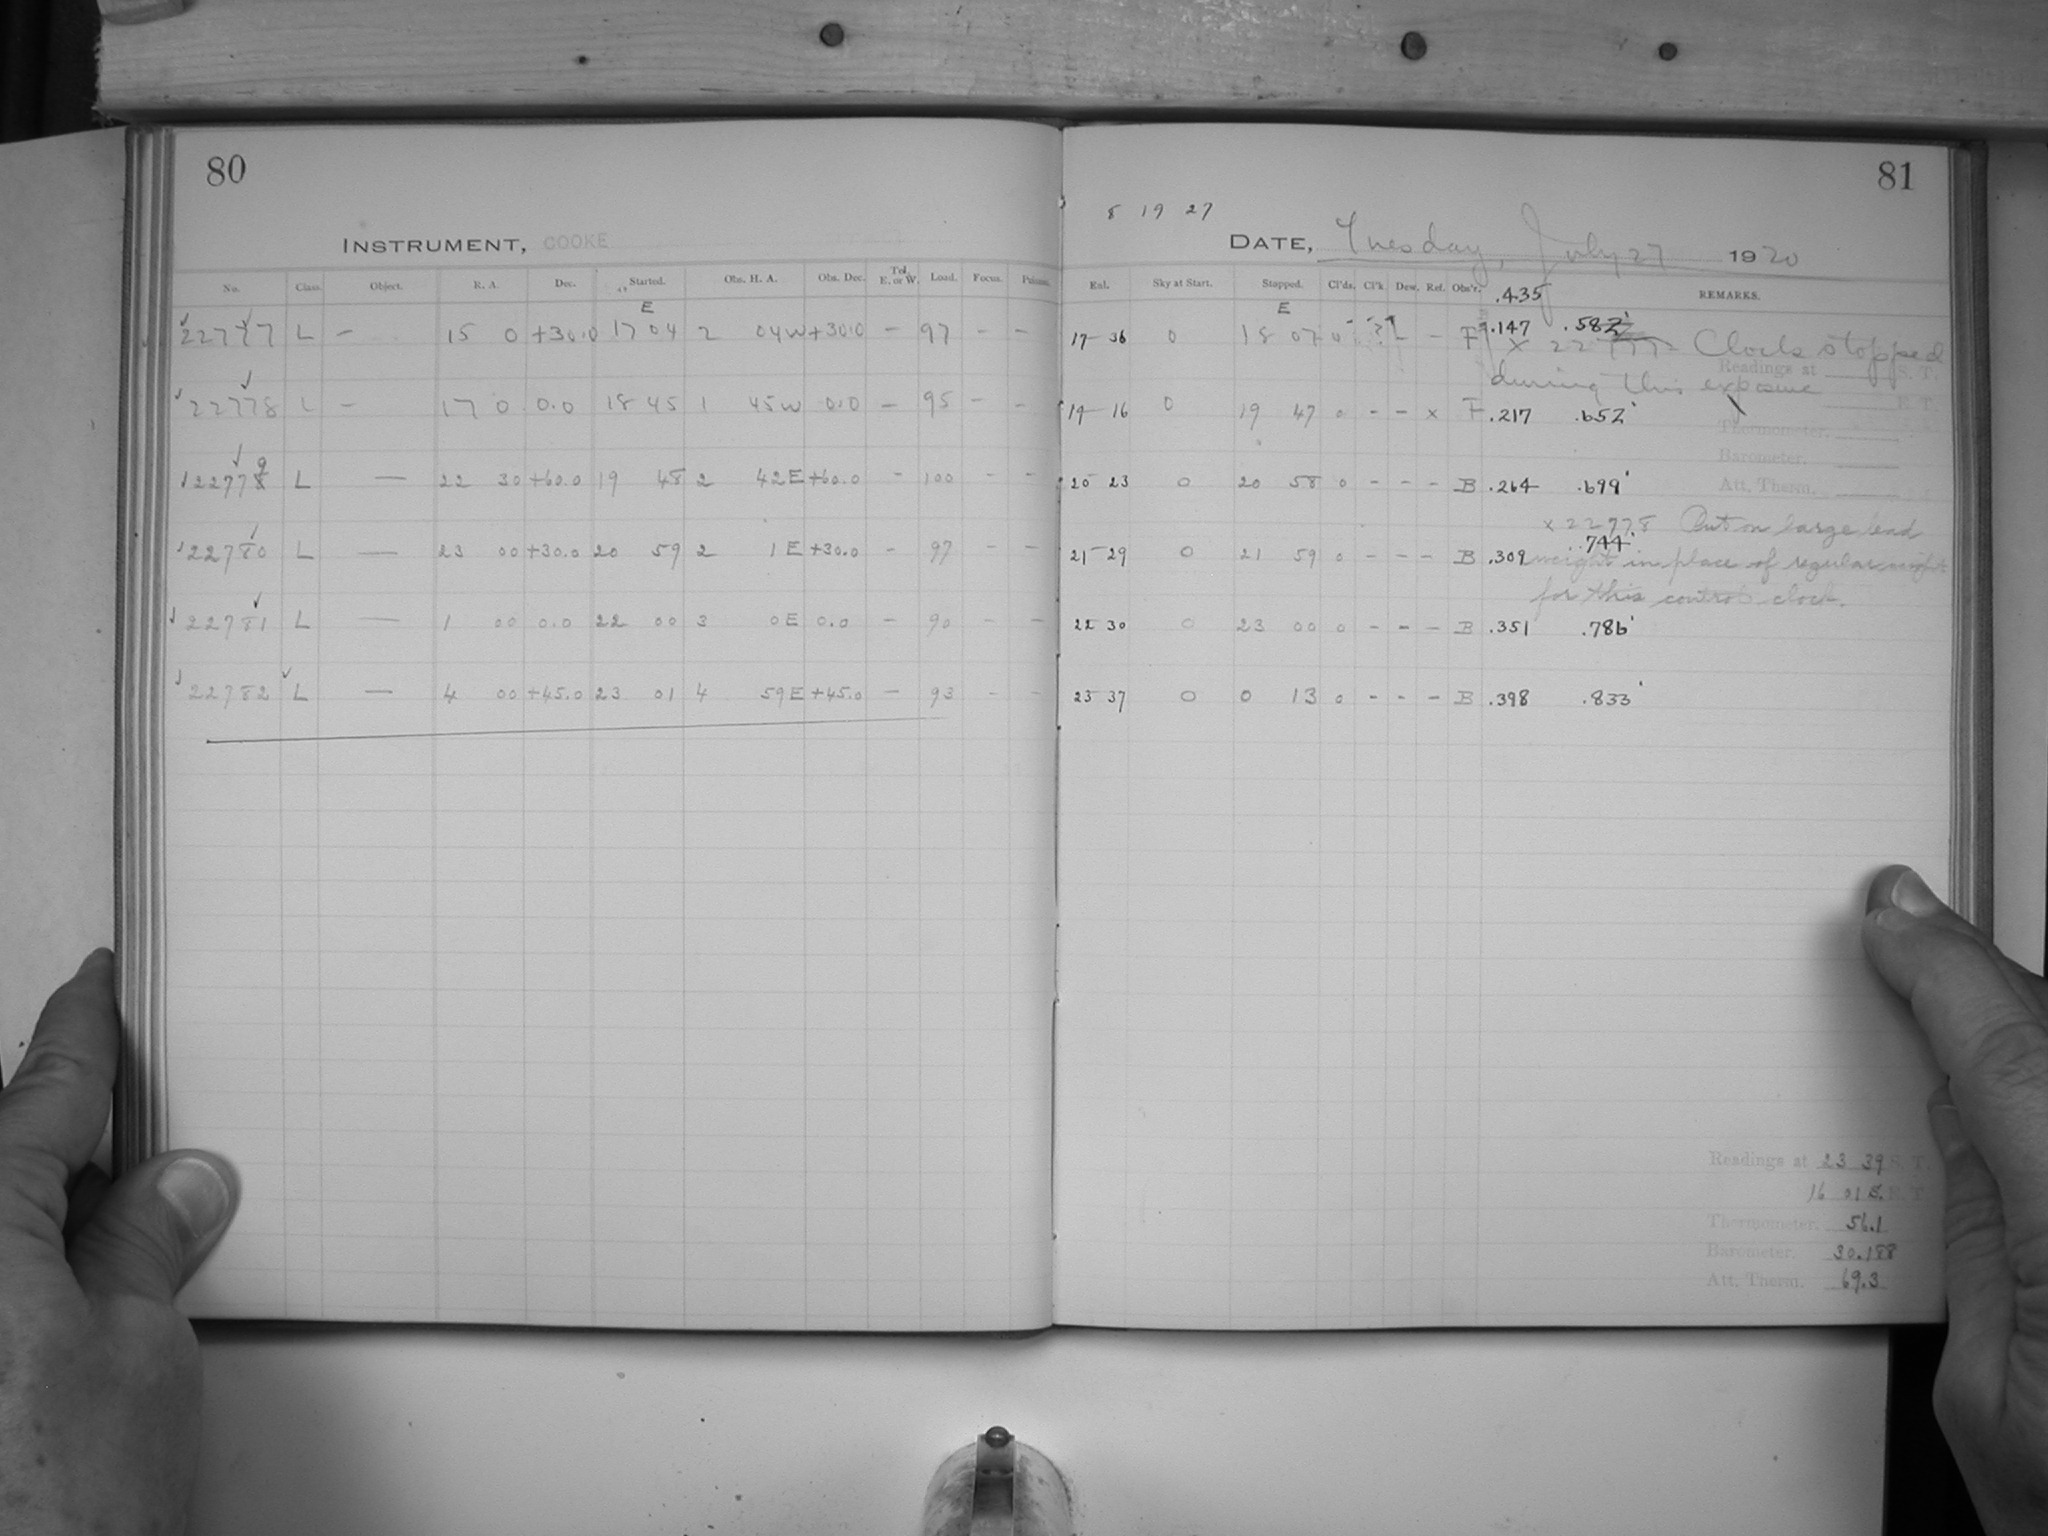 80
INSTRUMENT, COOKE
No. Class. Object. R. A. Dec. Started. Obs. H. A. Obs. Dec. Tel. E. or W. Load. Focus. Prisms.
E
22777 L — 15 0 +30.0 17 04 2 04W +30.0 — 97 — —
22778 L — 17 0 0.0 18 45 1 45W 0.0 — 95 — —
9
22778 L — 22 30 +60.0 19 48 2 42E +60.0 — 100 — —
22780 L — 23 00 +30.0 20 59 2 1E +30.0 — 97 — —
22781 L — 1 00 0.0 22 00 3 0E 0.0 — 90 — —
22782 L — 4 00 +45.0 23 01 4 59E +45.0 — 93 — —
81
8 19 27
DATE, Tuesday, July 27 1920
Exl. Sky at Start. Stopped. Cl'ds. Cl'k. Dew. Ref. Obs'r. .435 REMARKS.
E
17 36 0 18 07 0 - ? - F .147 .582
x 22777 Clock stopped
Readings at S. T.
during this exposure
E. T.
19 16 0 19 47 0 - - x F .217 .652
Thermometer.
Barometer.
20 23 0 20 58 0 - - - B .264 .699
Att. Therm.
x 22778 Put on large lead
21 29 0 21 59 0 - - - B .309 .744
weight in place of regular weight
for this control clock.
22 30 0 23 00 0 - - - B .351 .786
23 37 0 0 13 0 - - - B .398 .833
Readings at 23 39 S. T.
16 01 E. T.
Thermometer. 56.1
Barometer. 30.188
Att. Therm. 69.3